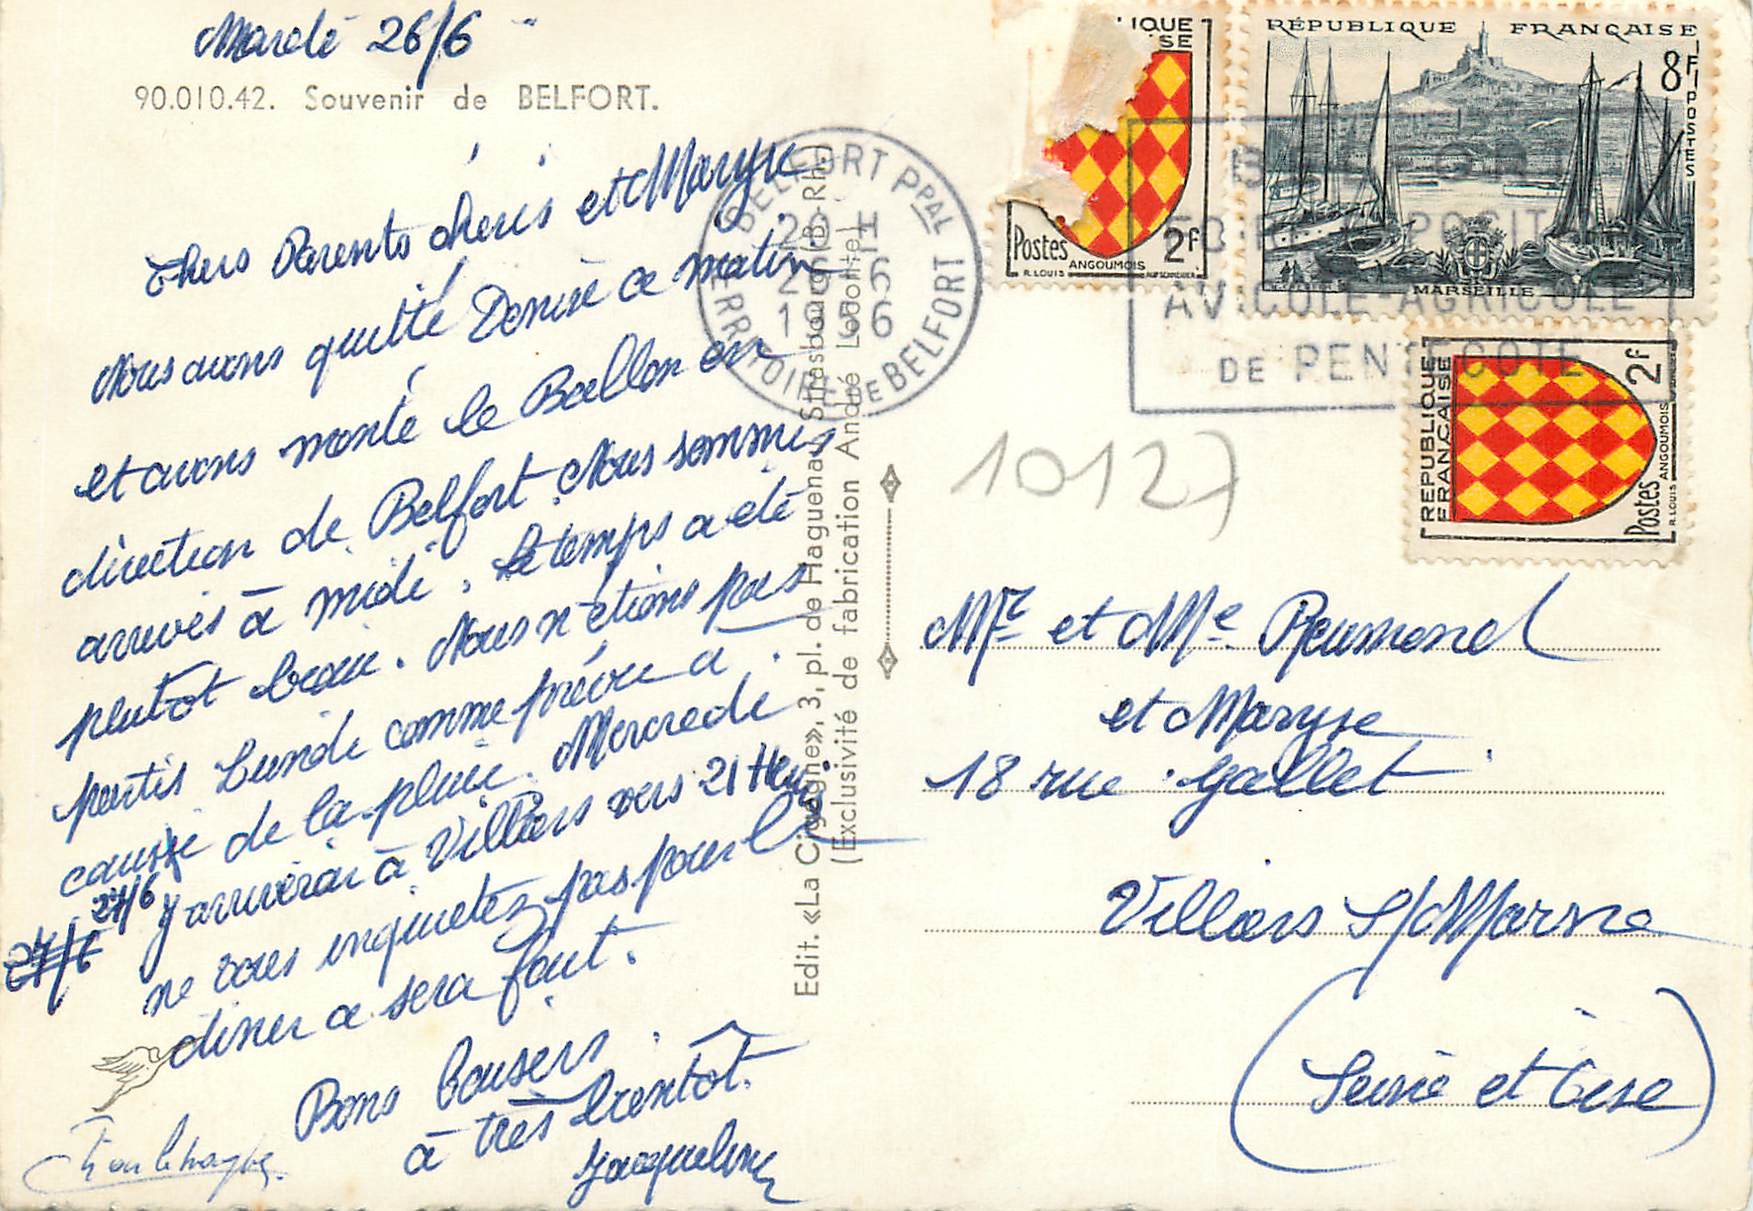 Mardi 26/6
90.010.42. Souvenir de BELFORT.
Chers Parents chéris et Maryse
Nous avons quitté Denise ce matin
et avons monté le Ballon en
direction de Belfort. Nous sommes
arrivés à midi. Le temps a été
plutôt beau. Nous n'étions pas
partis Lundi comme prévu à
cause de la pluie. Mercredi
27/6
27/6 j'arriverai à Villiers vers 21 Heu
ne vous inquietez pas pour le
diner ce sera fait.
Bons baisers
à très bientôt.
Jacqueline
Edit. «La Cigogne», 3, pl. de Haguenau, Strasbourg (B.-Rh.)
(Exclusivité de fabrication André Leconte)
BELFORT PPAL
20 H
26-6
1956
TERRITOIRE DE BELFORT
BELFORT
FOIRE EXPOSITION
AVICOLE-AGRICOLE
DE PENTECOTE
IQUE
SE
Postes 2F
ANGOUMOIS
R. LOUIS
RÉPUBLIQUE FRANÇAISE
8F
POSTES
MARSEILLE
REPUBLIQUE
FRANÇAISE
2F
Postes
ANGOUMOIS
R. LOUIS
10127
Mr et Me Reumond
et Maryse
18 rue Gallet
Villiers S/Marne
(Seine et Oise)